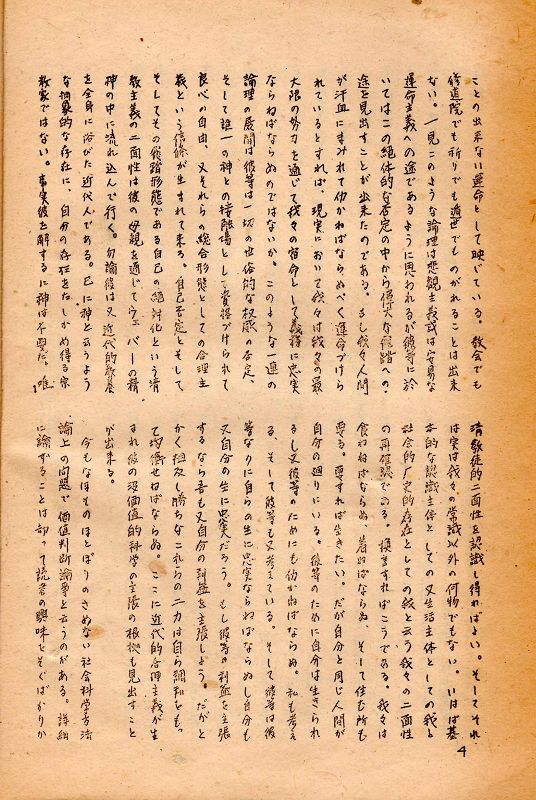 ことの出来ない運命として映じている。教会でも
修道院でも祈りでも遁世でものがれることは出来
ない。一見このような論理は悲観主義或は安易な
運命主義への途であるように思われるが彼等に於
いてはこの絶体的な否定の中から偉大な飛躍への
途を見出すことが出来たのである。もし我々人間
が汗血にまみれて仂かねばならぬべく運命づけら
れているとすれば、現実において我々は我々の最
大限の努力を通じて我々の宿命として義務に忠実
ならねばならぬのではないか。このような一連の
論理の展開は彼等は一切の世俗的な权威の否定、
そして誰一の神との接触場として資格づけられて
良心の自由、又それらの綜合形態としての合理主
義という信條が生まれて来る。自己否定とそして
そしてその飛躍形態である自己の絶対化という清
教主義の二面性は彼の母親を通じてウェバーの精
神の中に流れ込んで行く。勿論彼は又近代的教養
を全身に浴びた近代人である。已に神と云うよう
な抽象的な存在に、自分の存在をたしかめ得る宗
教家ではない。事実彼を解するに神は不要だ。唯
清教徒的二面性を認識し得ればよい。そしてそれ
は実は我々の常識以外の何物でもない。いはば基
本的な認識主体としての又生活主体としての我と
社会的歴史的存在としての我と云う我々の二面性
の再確認である。換言すればこうである。我々は
食わねばならぬ、着ねばならぬ、そして住む所も
要る。要すれば生きたい。だが自分と同じ人間が
自分の廻りにいる。彼等のために自分は生きられ
るし又彼等のためにも仂かねばならぬ。私も考え
る、そして彼等も又考えている。そして彼等は彼
等なりに自らの生に忠実ならねばならぬし自分も
又自分の生に忠実だろう。もし彼等の利益を主張
するなら吾も又自分の利益を主張しよう。だがと
かく相反し勝ちなこれらの二力は自ら調和をもっ
て均衡せねばならぬ。ここに近代的合理主義が生
まれ彼の没価値的科学の主張の根拠も見出すこと
が出来る。
今もなほそのほとぼりのさめない社会科学方法
論上の問題で価値判断論争と云うのがある。詳細
に論ずることは却って読者の興味をそぐばかりか
4